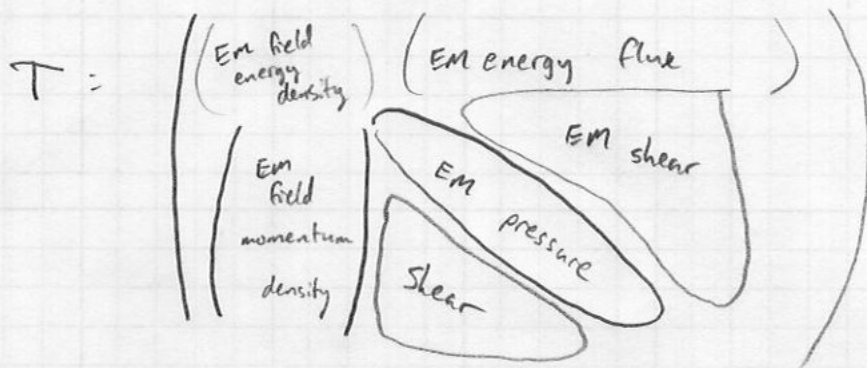 T =
Em field
energy
density
EM energy flux
Em
field
momentum
density
EM
pressure
EM shear
Shear